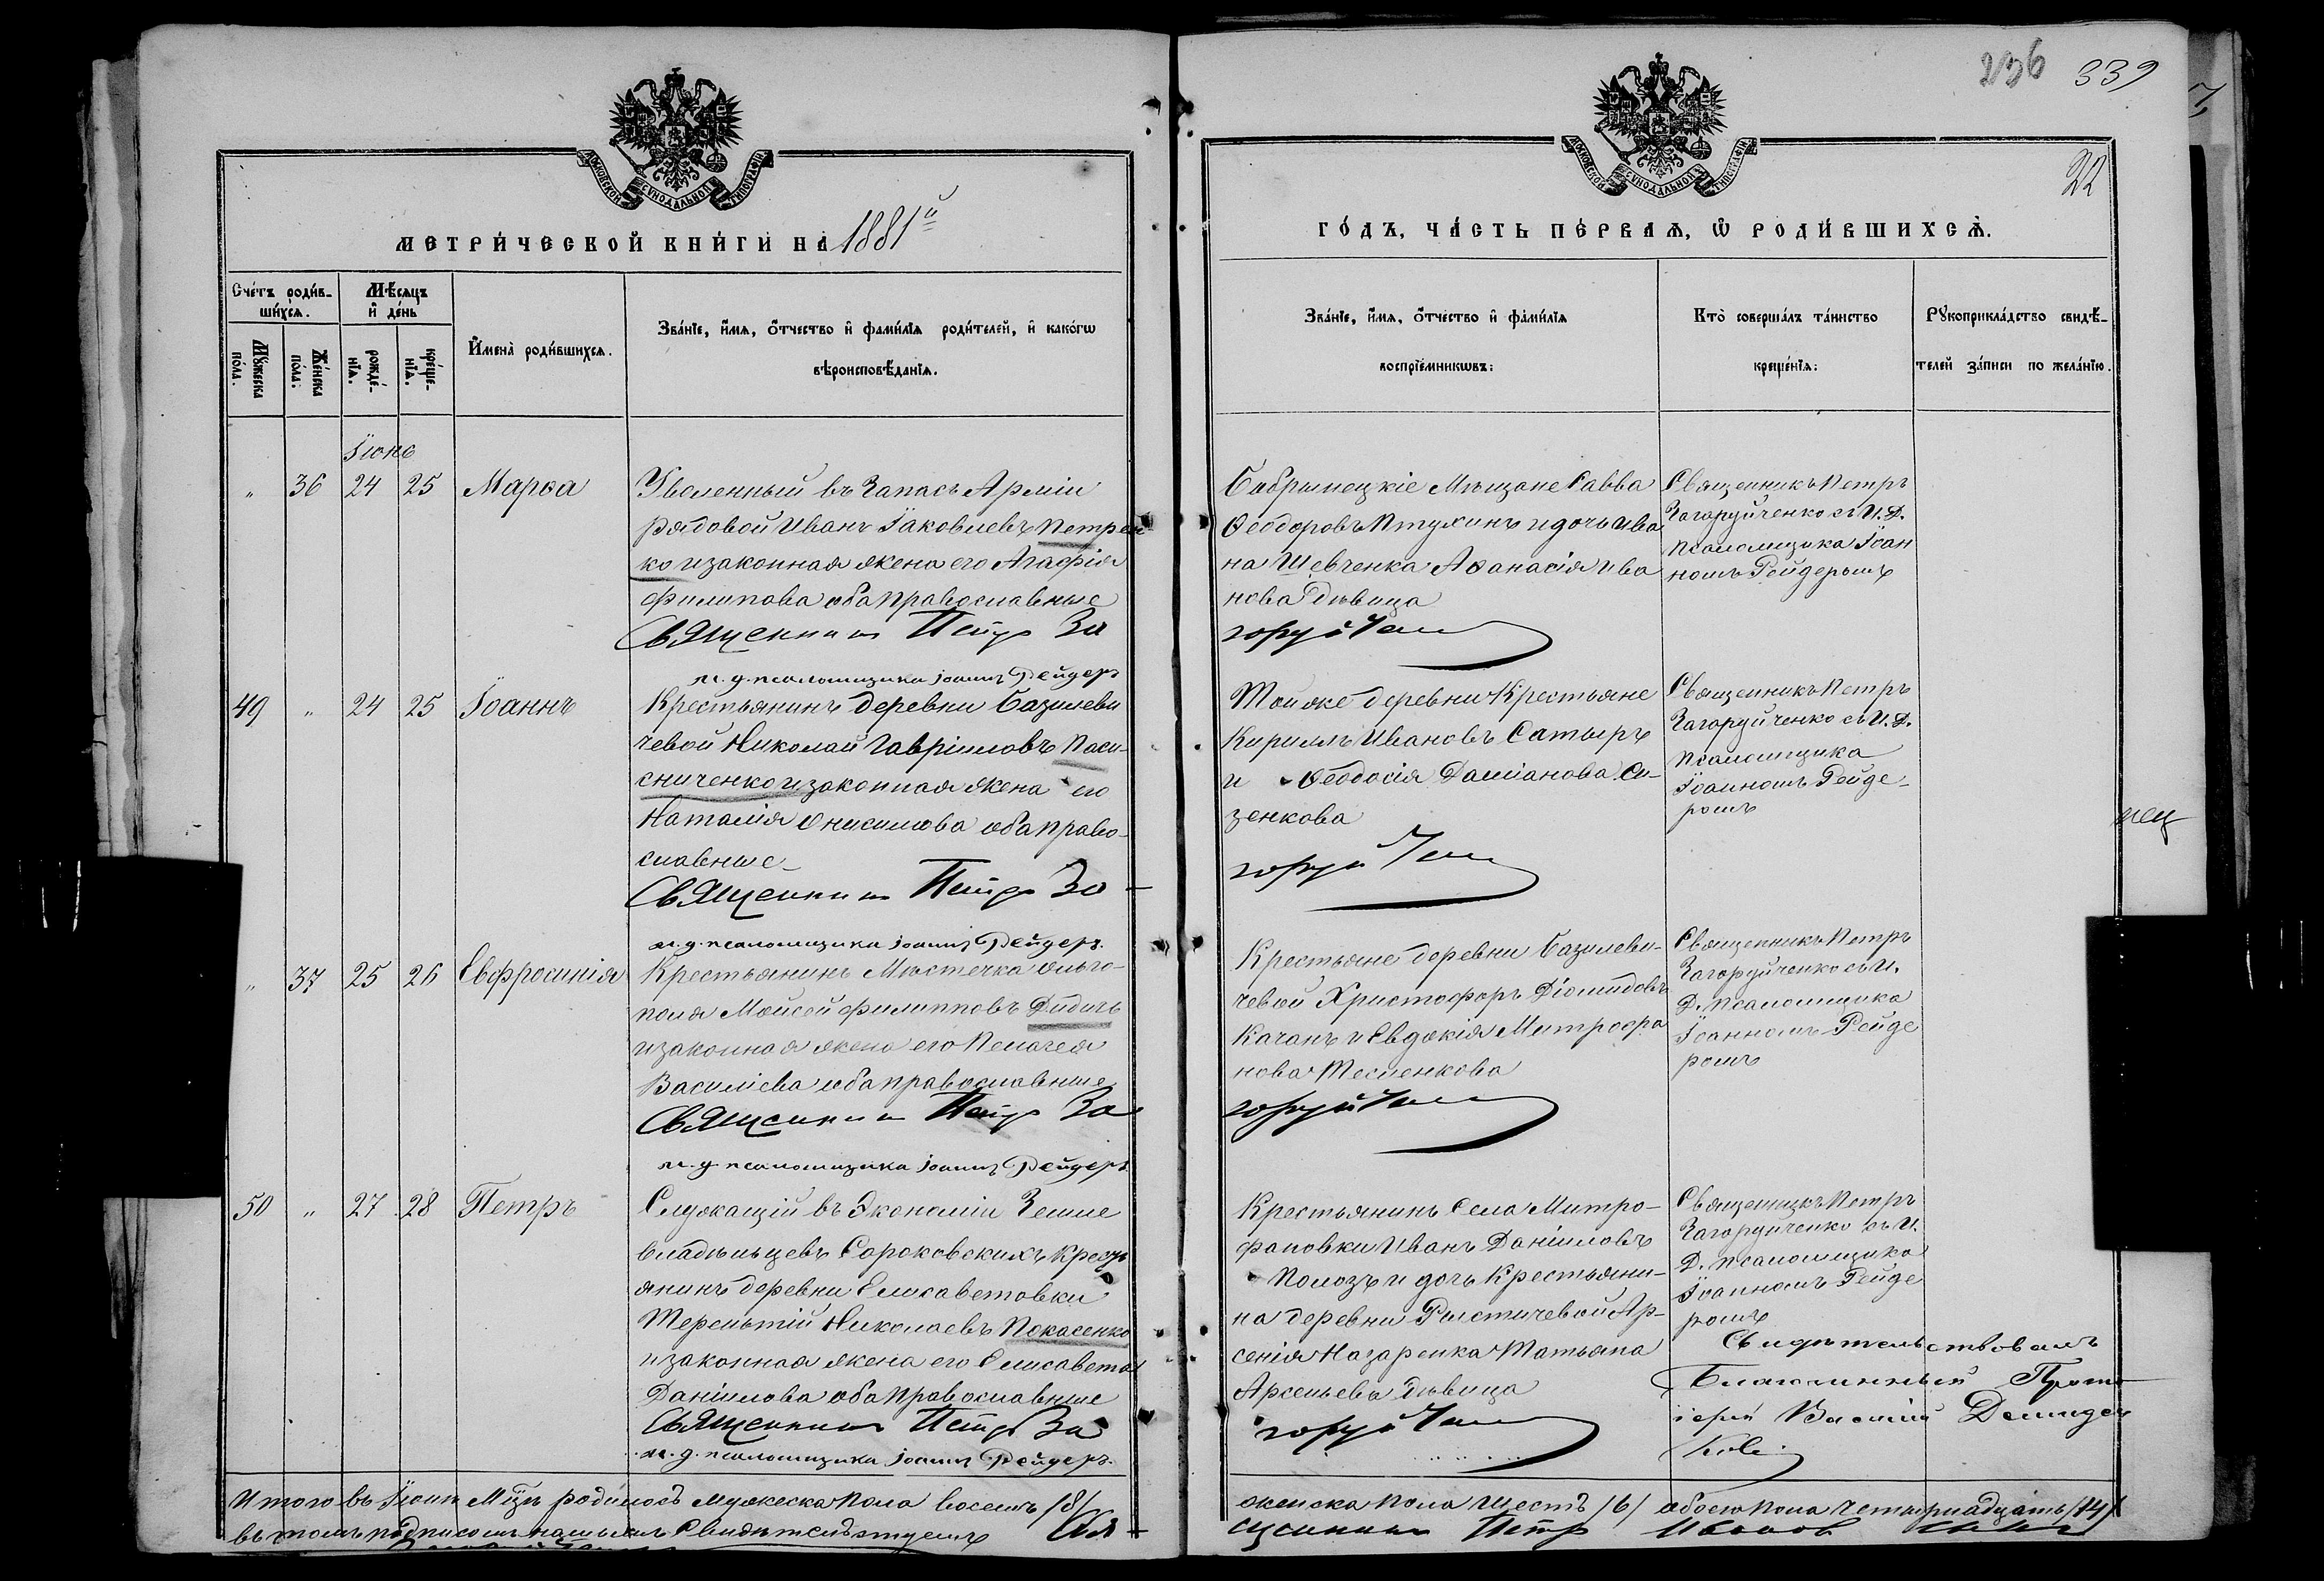 236 339
22
МОСКОВСКОЙ СѴНОДАЛЬНОЙ ТИПОГРАФІИ
МОСКОВСКОЙ СѴНОДАЛЬНОЙ ТИПОГРАФІИ
МЕТРИ́ЧЕСКОЙ КНИ́ГИ НА 1881й
ГО́ДЪ, ЧА́СТЬ ПЕ́РВАѦ, Ѿ РОДИ́ВШИХСѦ.
Сче́тъ роди́в-
ши́хсѧ.
Мꙋ́жеска по́ла.
Же́нска по́ла.
Мѣ́сѧцъ и де́нь
рожде́-
нїѧ.
креще-
нїѧ.
И́мена̀ роди́вшихсѧ.
Зва́нїе, и́мѧ, о́тчество и фами́лїѧ роди́телей, и како́гѡ
вѣроисповѣ́данїѧ.
Зва́нїе, и́мѧ, о́тчество и фами́лїѧ
воспрїе́мникѡвъ:
Кто̀ соверша́лъ та́инство
креще́нїѧ:
Рꙋкоприкла́дство свидѣ́-
телей за́писи по жела́нїю.
Іюнь
" 36 24 25 Марѳа
Уволенный въ Запасъ Арміи
рядовой Иванъ Іаковлевъ Петрен
ко и законная жена его Агафія
Филипова оба православные
Священникъ Петръ За
и. д. псаломщика Іоаннъ Рейдеръ
Бобринецкіе Мѣщане Савва
Ѳеодоровъ Птухинъ и дочь Ива
на Шевченка Аѳанасія Ива
нова дѣвица
горуйчен
Священникъ Петръ
Загоруйченко съ И. Д.
псаломщика Іоан
номъ Рейдеромъ
49 " 24 25 Іоаннъ
Крестьянинъ деревни Базилеви
чевой Николай Гавріиловъ Паси-
сниченко и законная жена его
Наталія Онисимова оба право-
славные
Священникъ Петръ За-
и. д. псаломщика Іоаннъ Рейдеръ.
Тойже деревни Крестьяне
Кириллъ Ивановъ Сатыръ
и Ѳеодосія Даміанова Си-
зенкова
горуйчен
Священникъ Петръ
Загоруйченко съ И. Д.
псаломщика
Іоанномъ Рейде-
ромъ
" 37 25 26 Евфросинія
Крестьянинъ Мѣстечка Ольго-
поля Мойсей Филипповъ Дидичъ
и законная жена его Пелагея
Василіева оба православные
Священникъ Петръ За
и. д. псаломщика Іоаннъ Рейдеръ
Крестьяне деревни Базилеви-
чевой Христофоръ Діомидовъ
Качанъ и Евдокія Митрофа
нова Тесленкова
горуйчен
Священникъ Петръ
Загоруйченко съ И.
Д. псаломщика
Іоанномъ Рейде
ромъ
50 " 27 28 Петръ
Служащій въ Экономіи Земле
владѣльцевъ Сороковскихъ крестъ
янинъ деревни Елисаветовки
Терентій Николаевъ Покасенко
и законная жена его Елисавета
Даніилова оба православные
Священникъ Петръ За
и. д. псаломщика Іоаннъ Рейдеръ.
Крестьянинъ Села Митро-
фановки Иванъ Даніиловъ
Полозъ и дочь Крестьяни-
на деревни Ристичевой Ар-
сенія Назаренка Татьяна
Арсеньева дѣвица
горуйчен
Священникъ Петръ
Загоруйченко съ И.
Д. псаломщика
Іоанномъ Рейде
ромъ
Свидѣтельствовалъ
Благочинный Прото
іерей Василій Демиден
ков
Итого въ Іюнѣ Мцѣ родилось мужеска пола восемь /8/
женска пола шесть /6/ обоего пола четырнадцать /14/
въ томъ подписомъ нашимъ Свидѣтельствуемъ Свя-
щенникъ Петръ